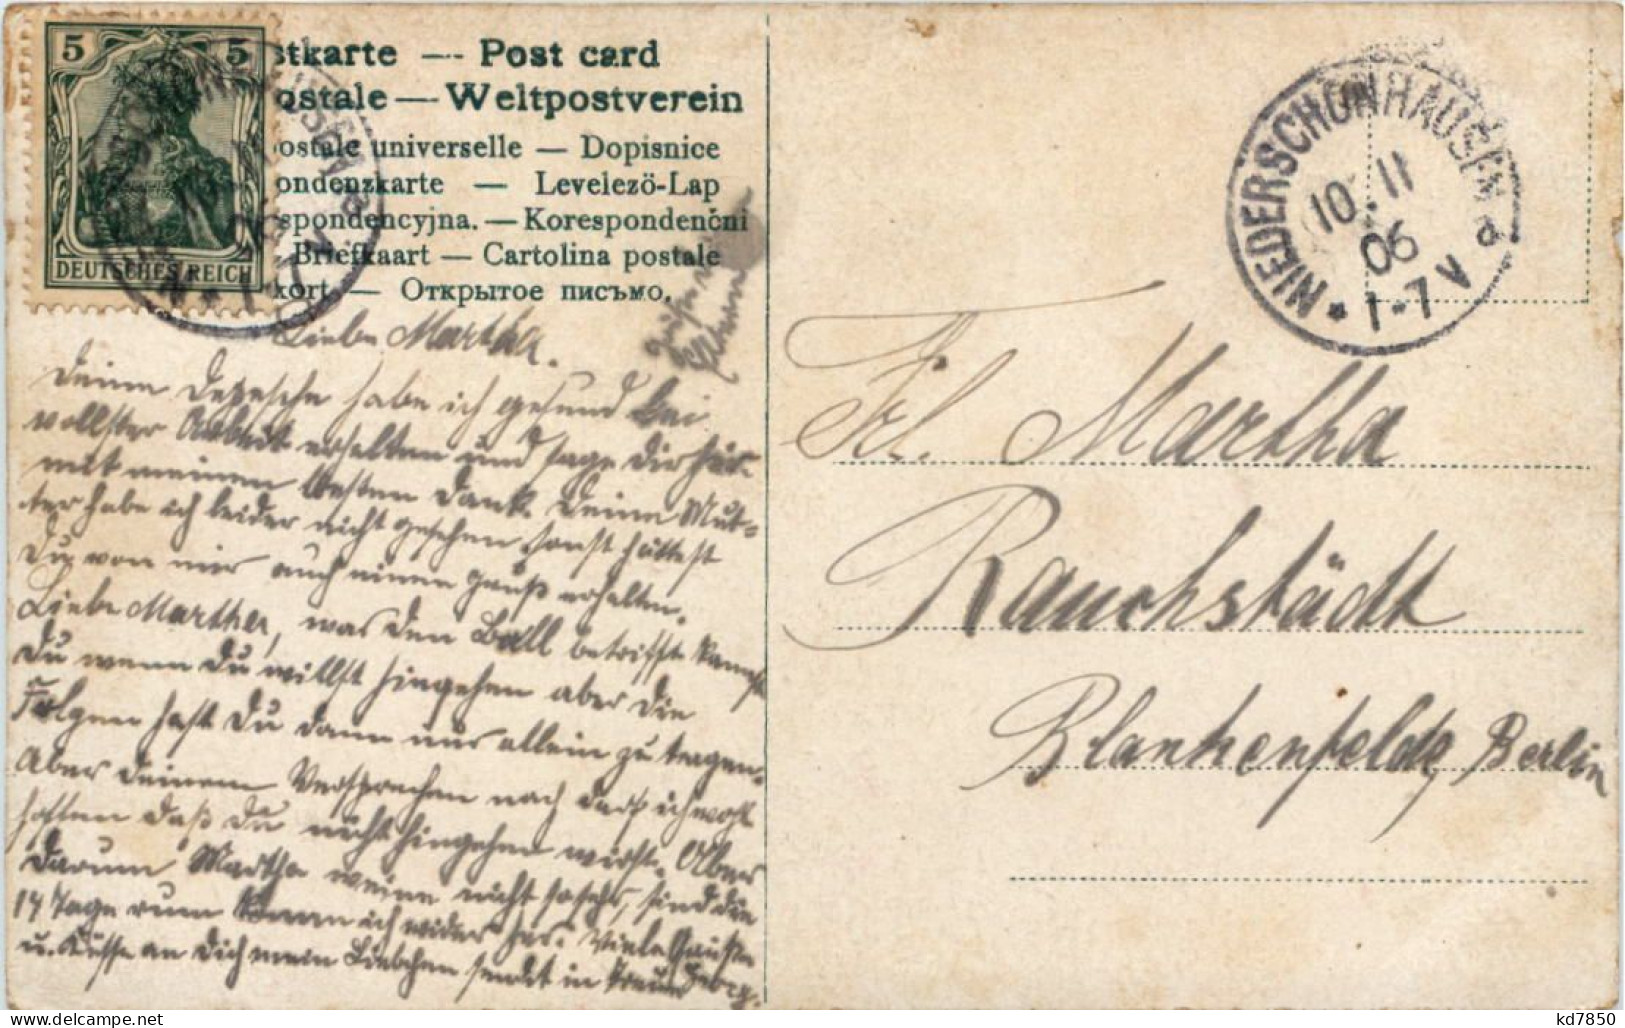 5 5
DEUTSCHES REICH
stkarte — Post card
ostale — Weltpostverein
postale universelle — Dopisnice
ondenzkarte — Levelező-Lap
spondencyjna. — Korespondenční
Briefkaart — Cartolina postale
kort — Открытое письмо.
NIEDERSCHÖNHAUSEN a
10.11
06
* 1-7 V
Liebe Martha.
Deine Depesche habe ich gesund bei
vollster Arbeit erhalten und sage Dir hier-
mit meinen besten Dank. Deine Mut-
ter habe ich leider nicht gesehen, sonst hättest
Du von mir auch einen Gruß erhalten.
Liebe Martha, was den Ball betrifft kannst
Du wenn Du willst hingehen aber die
Folgen hast Du dann nur allein zu tragen.
Aber deinem Versprechen nach darf ich wohl
hoffen daß Du nicht hingehen wirst. Aber
darum Martha weine nicht so sehr, sind die
14 Tage rum komm ich wieder her. Viele Grüße
u. Küsse an Dich mein Liebchen sendet in Treue Georg.
Frl. Martha
Rauchstädt
Blankenfelde, Berlin
kd7850